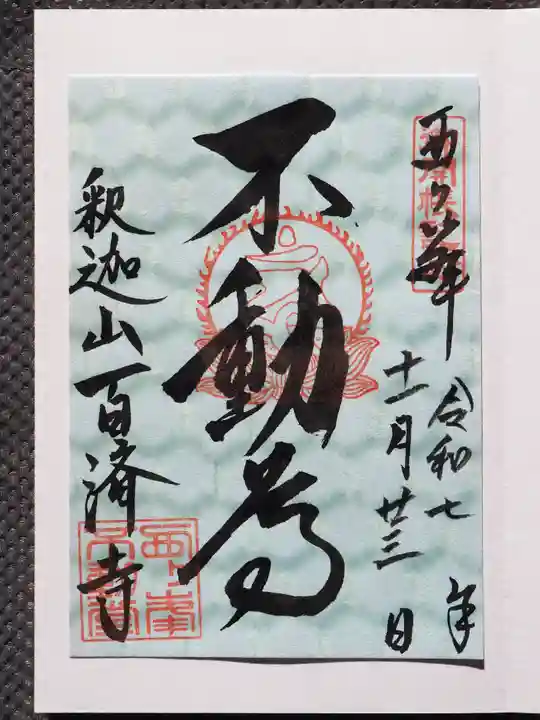 西ヶ峯
令和七年
十一月廿三日
不動尊
釈迦山百済寺